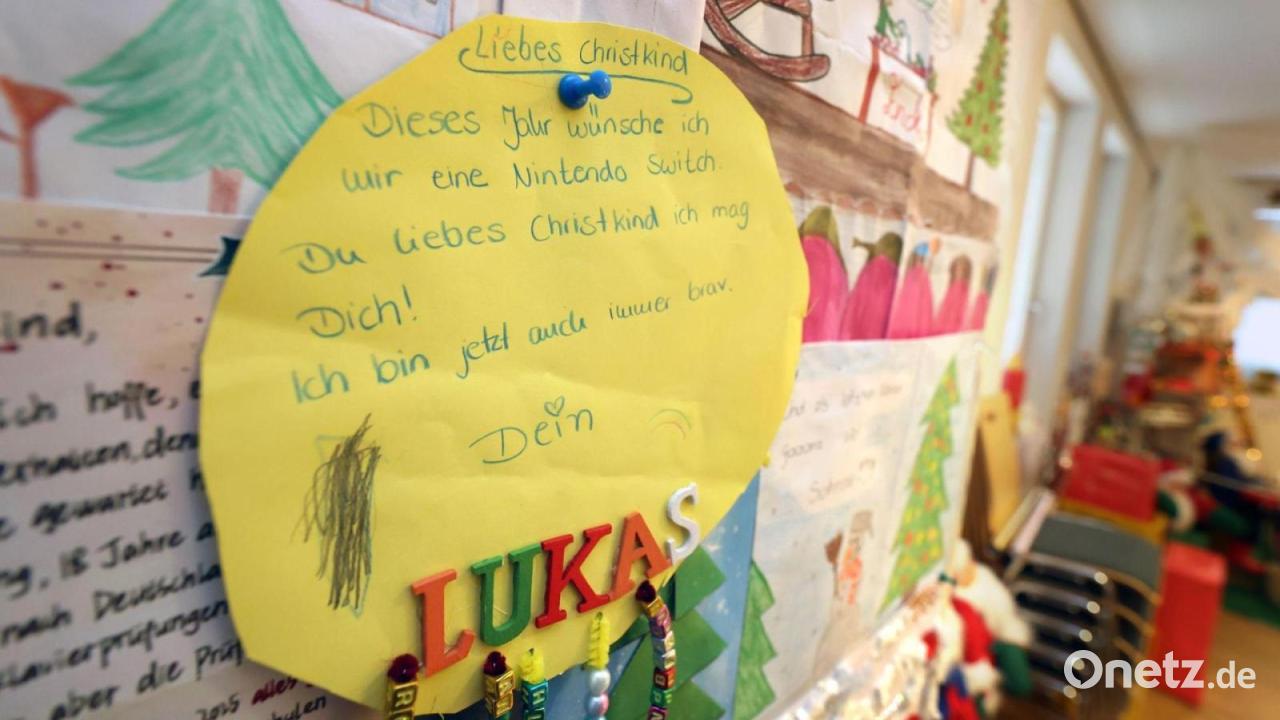 Liebes Christkind
Dieses Jahr wünsche ich
mir eine Nintendo Switch.
Du liebes Christkind ich mag
Dich!
Ich bin jetzt auch immer brav.
Dein
LUKAS
ind,
ich hoffe,
gewartet
18 Jahre
nach Deutschla
klavierprüfungen
aber die Prüf
2025 alles
Onetz.de